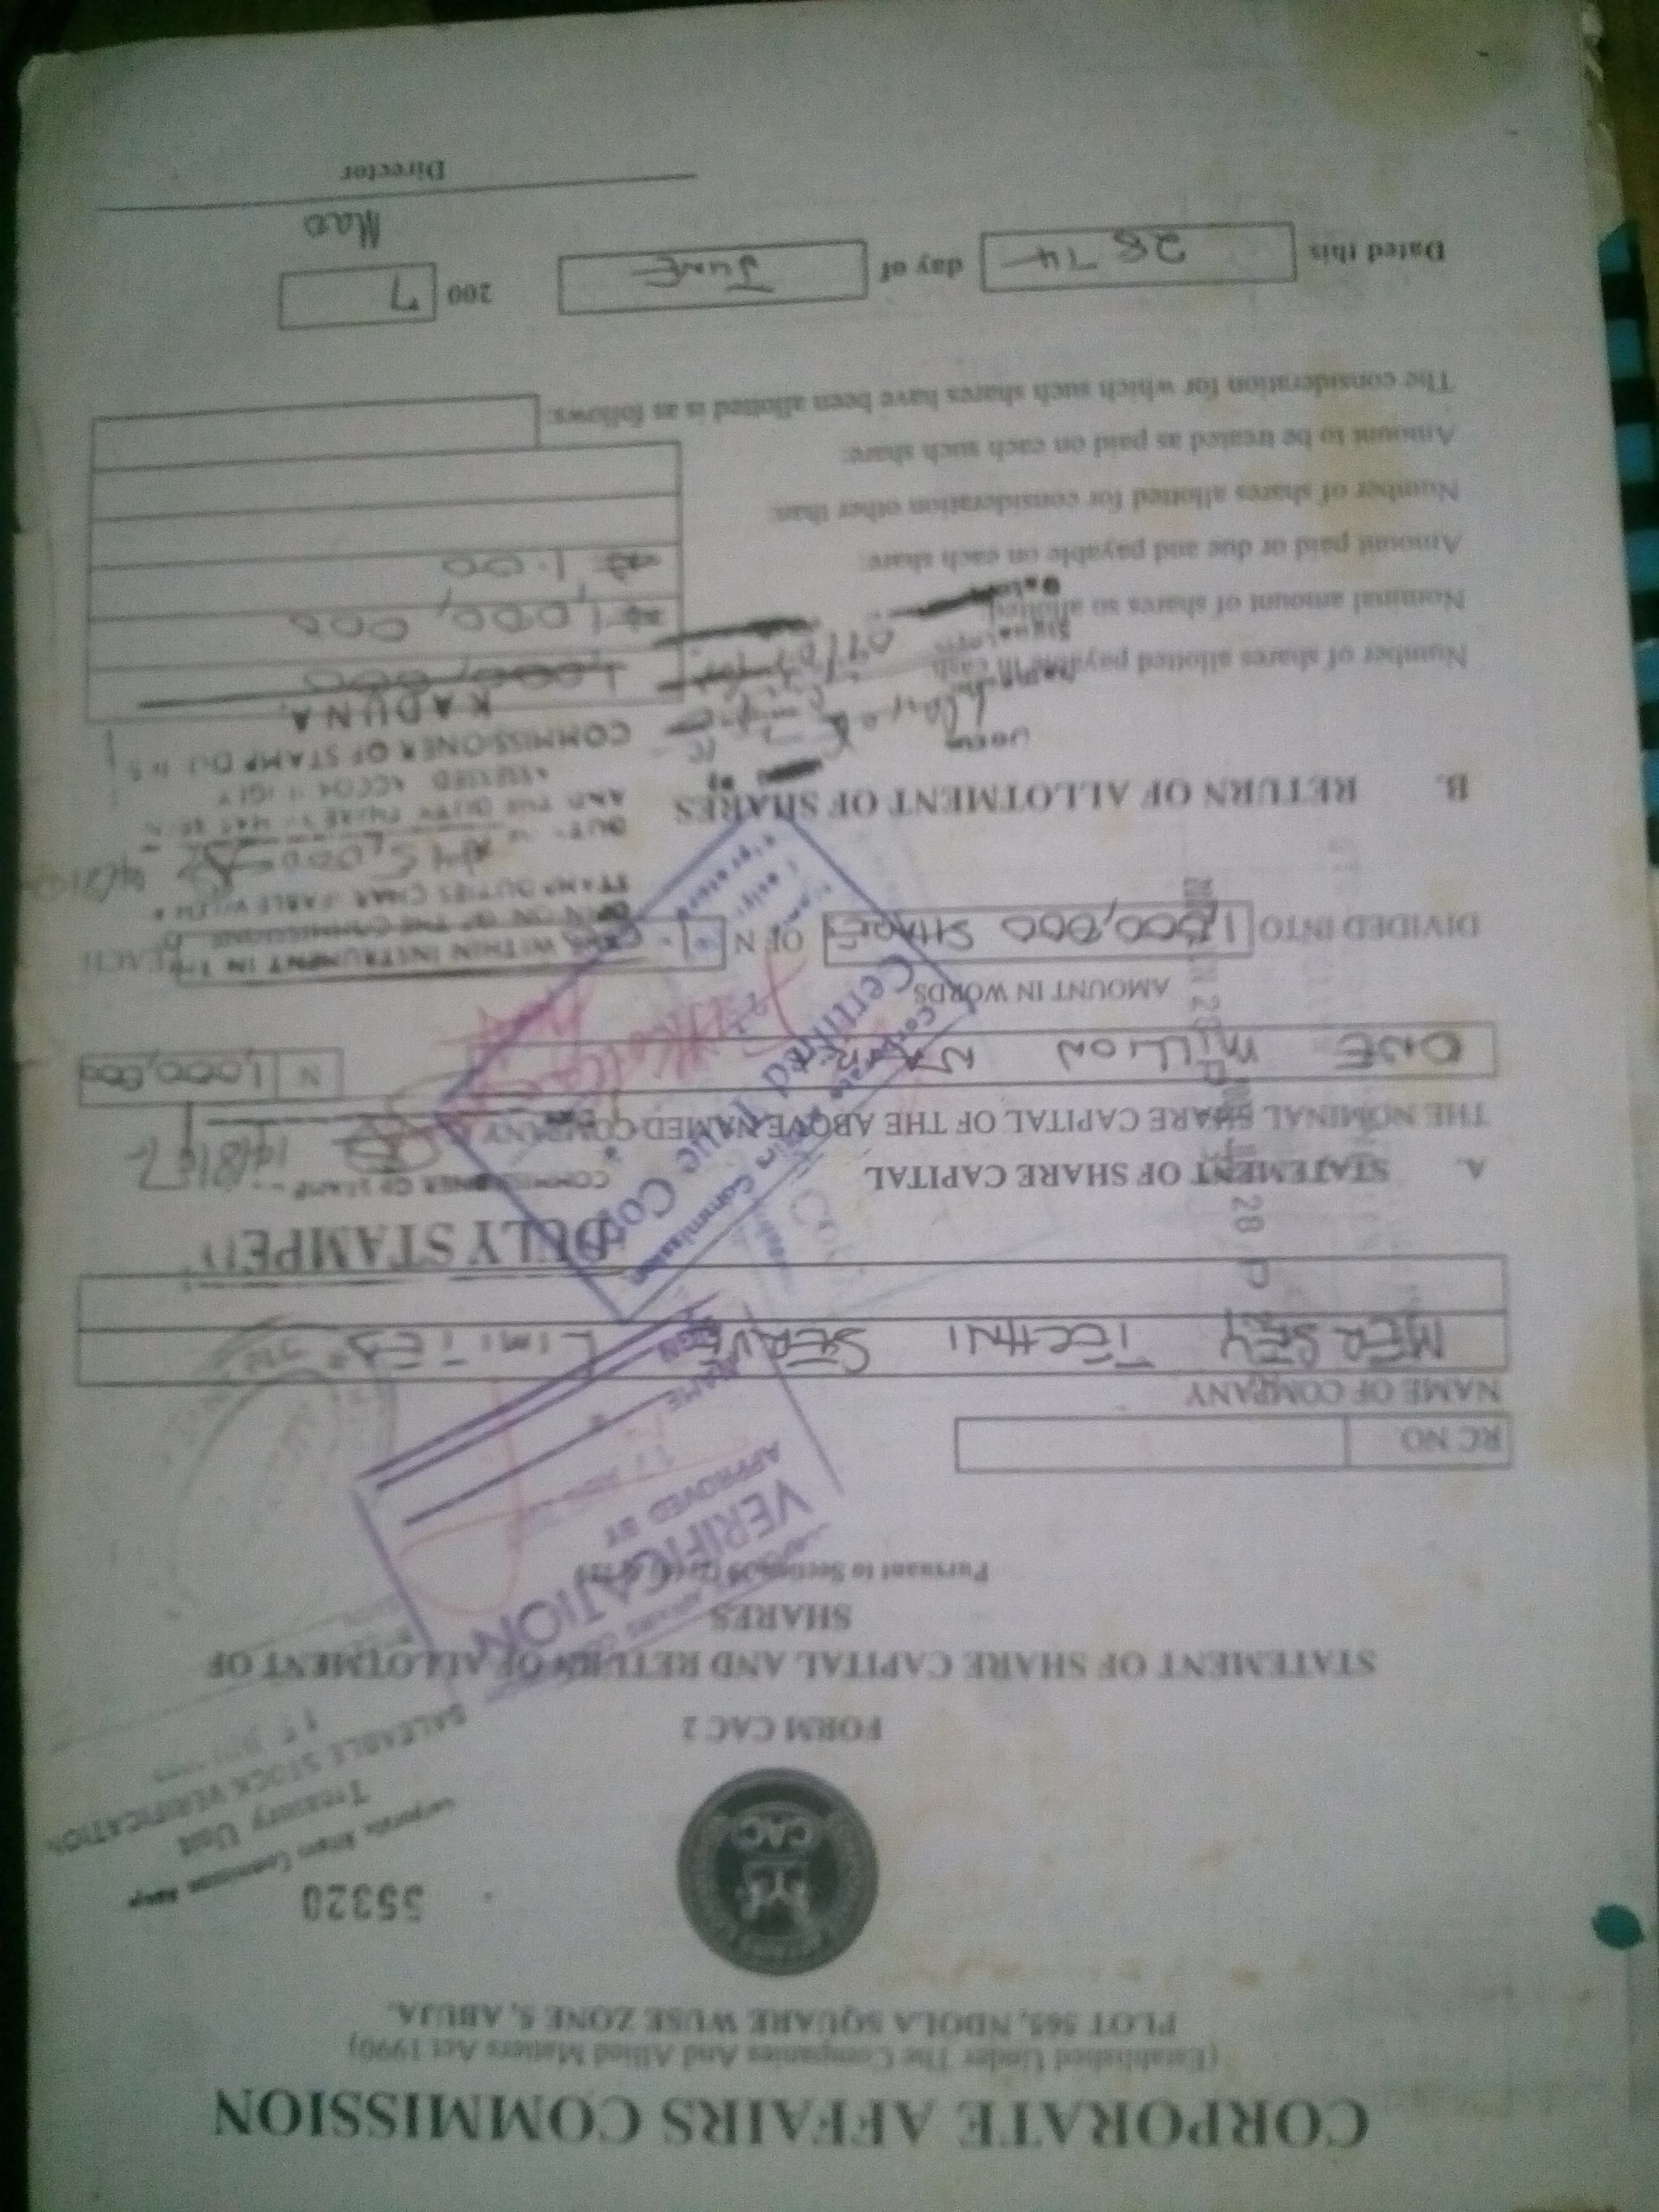 CORPORATE AFFAIRS COMMISSION
(Established Under The Companies And Allied Matters Act 1990)
PLOT 565, NDOLA SQUARE WUSE ZONE 5, ABUJA.
CAC
55320
Corporate Affairs Commission
Treasury Unit
SALEABLE STOCK VERIFICATION
FORM CAC 2
STATEMENT OF SHARE CAPITAL AND RETURN OF ALLOTMENT OF
SHARES
Pursuant to Section
VERIFICATION
APPROVED BY
NAME
SIGN
RC NO
NAME OF COMPANY
MERSEY TECHNI SERVE LIMITED
DULY STAMPED
COMMISSIONER OF STAMP
A. STATEMENT OF SHARE CAPITAL
THE NOMINAL SHARE CAPITAL OF THE ABOVE NAMED COMPANY
Corporate Affairs Commission
Certified True Copy
ONE MILLION NAIRA
N 1,000,000
AMOUNT IN WORDS
DIVIDED INTO 1,000,000 SHARES OF N EACH
WITHIN INSTRUMENT IN THE
OPINION OF THE COMMISSIONE
STAMP DUTIES CHARGEABLE WITH A
AND THE DUTY HAS BEEN
ASSESSED ACCORDINGLY
COMMISSIONER OF STAMP DUTIES
KADUNA.
B. RETURN OF ALLOTMENT OF SHARES
Number of shares allotted payable in cash: 1,000,000
Nominal amount of shares so allotted: ₦1,000,000
Amount paid or due and payable on each share: ₦1.00
Number of shares allotted for consideration other than:
Amount to be treated as paid on each such share:
The consideration for which such shares have been allotted is as follows:
Dated this 28TH day of JUNE 200 7
Director